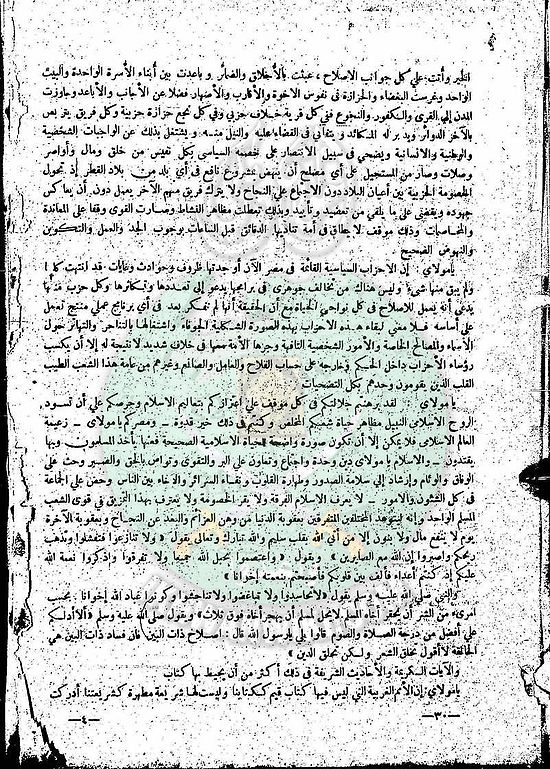 الخير وأتت علي كل جوانب الاصلاح ، عبثت بالأخلاق والضمائر وباعدت بين أبناء الأسرة الواحدة والبيت
الواحد وغرست البغضاء والحزازة فى نفوس الاخوة والأقارب والأصهار فضلا عن الأجانب والأباعد وجاوزت
المدن إلى القرى والكفور والنجوع ففي كل قرية خلاف حزبى وفى كل نجع حزازة حزبية وكل فريق يتربص
بالآخر الدوائر ويدبر له المكائد ويتفانى فى القضاء عليه والنيل منه ويشتغل بذلك عن الواجبات الشخصية
والوطنية والانسانية ويضحي فى سبيل الانتصار على خصمه السياسى بكل نفيس من خلق ومال وأواصر
وصلات وصار من المستحيل على أي مصلح أن ينهض بمشروع نافع فى أي بلد من بلاد القطر إذ تحول
الخصومة الحزبية بين أعيان البلاد دون الاجتماع علي النجاح ولا يترك فريق منهم الآخر يعمل دون أن يعاكس
جهوده ويقضى على ما يلقي من تعضيد وتأييد وبذلك تعطلت مظاهر النشاط وصارت القوى وقفا على المعاندة
والمخاصمات وذلك موقف لا يطاق فى أمة تناديها الدقائق قبل الساعات بوجوب الجد والعمل والتكوين
والنهوض الصحيح
يا مولاي : إن الاحزاب السياسية القائمة فى مصر الآن أوجدتها ظروف وحوادث وغايات قد انتهت كلها
ولم يبق منها شىء وليس هناك من تخالف جوهرى فى برامجها يدعو إلى تعددها وتكاثرها وكل حزب منها
يدعى أنه يعمل للاصلاح فى كل نواحي الحياة مع أن الحقيقة أنها لم تفكر بعد فى أي برنامج عملي منتج تعمل
على أساسه فلا معنى لبقاء هذه الاحزاب بهذه الصورة الشكلية الجوفاء واشتغالها بالتناحر والتهاتر حول
الأسماء والمصالح الخاصة والأمور الشخصية التافهة وجرها الأمة معها فى خلاف شديد لا نتيجة له إلا أن يكسب
رؤساء الأحزاب داخل الحكم وخارجه على حساب الفلاح والعامل والصانع وغيرهم من عامة هذا الشعب الطيب
القلب الذين يقومون وحدهم بكل التضحيات
يا مولاي : لقد برهنتم جلالتكم فى كل موقف علي اعتزازكم بتعاليم الاسلام وحرصكم علي أن تسود
الروح الاسلامي النبيل مظاهر حياة شعبكم المخلص وكنتم فى ذلك خير قدوة ـ ومصركم يا مولاى ـ زعيمة
العالم الاسلامى فلا يمكن إلا أن تكون صورة واضحة للحياة الاسلامية الصحيحة فعنها يأخذ المسلمون وبها
يقتدون ـ والاسلام يا مولاى دين وحدة واجتماع وتعاون علي البر والتقوى وتواص بالحق والصبر وحث على
الوفاق والوئام وإرشاد إلي سلامة الصدور وطهارة القلوب ونقاء السرائر والاخاء بين الناس وحض علي الجماعة
فى كل الشئون والأمور ـ لا يعرف الاسلام الفرقة ولا يقر الخصومة ولا يعترف بهذا التمزيق في قوى الشعب
المسلم الواحد وإنه ليتوعد المختلفين المتفرقين بعقوبة الدنيا من وهن العزائم والبعد عن النجاح وبعقوبة الآخرة
يوم لا ينفع مال ولا بنون إلا من أتى الله بقلب سليم والله تبارك وتعالى يقول « ولا تنازعوا فتفشلوا وتذهب
ريحكم واصبروا إن الله مع الصابرين » ويقول « واعتصموا بحبل الله جميعا ولا تفرقوا واذكروا نعمة الله
عليكم إذ كنتم أعداء فألف بين قلوبكم فأصبحتم بنعمته إخوانا »
والنبي صلى الله عليه وسلم يقول «لا تحاسدوا ولا تباغضوا ولا تناجشوا وكونوا عباد الله إخوانا . بحسب
امرىء من الشر أن يحقر أخاه المسلم لا يحل لمسلم أن يهجر أخاه فوق ثلاث» ويقول صلى الله عليه وسلم «ألا أدلكم
على أفضل من درجة الصلاة والصوم قالوا بلى يا رسول الله قال : اصلاح ذات البين فان فساد ذات البين هي
الحالقة لا أقول تحلق الشعر ولكن تحلق الدين »
والآيات الكريمة والأحاديث الشريفة فى ذلك أكثر من أن يحيط بها كتاب
يا مولاي : إن الأمم الغربية التي ليس فيها كتاب قيم ككتابنا وليست لها شرعة مطهرة كشريعتنا أدركت
—٣٠—
—٤